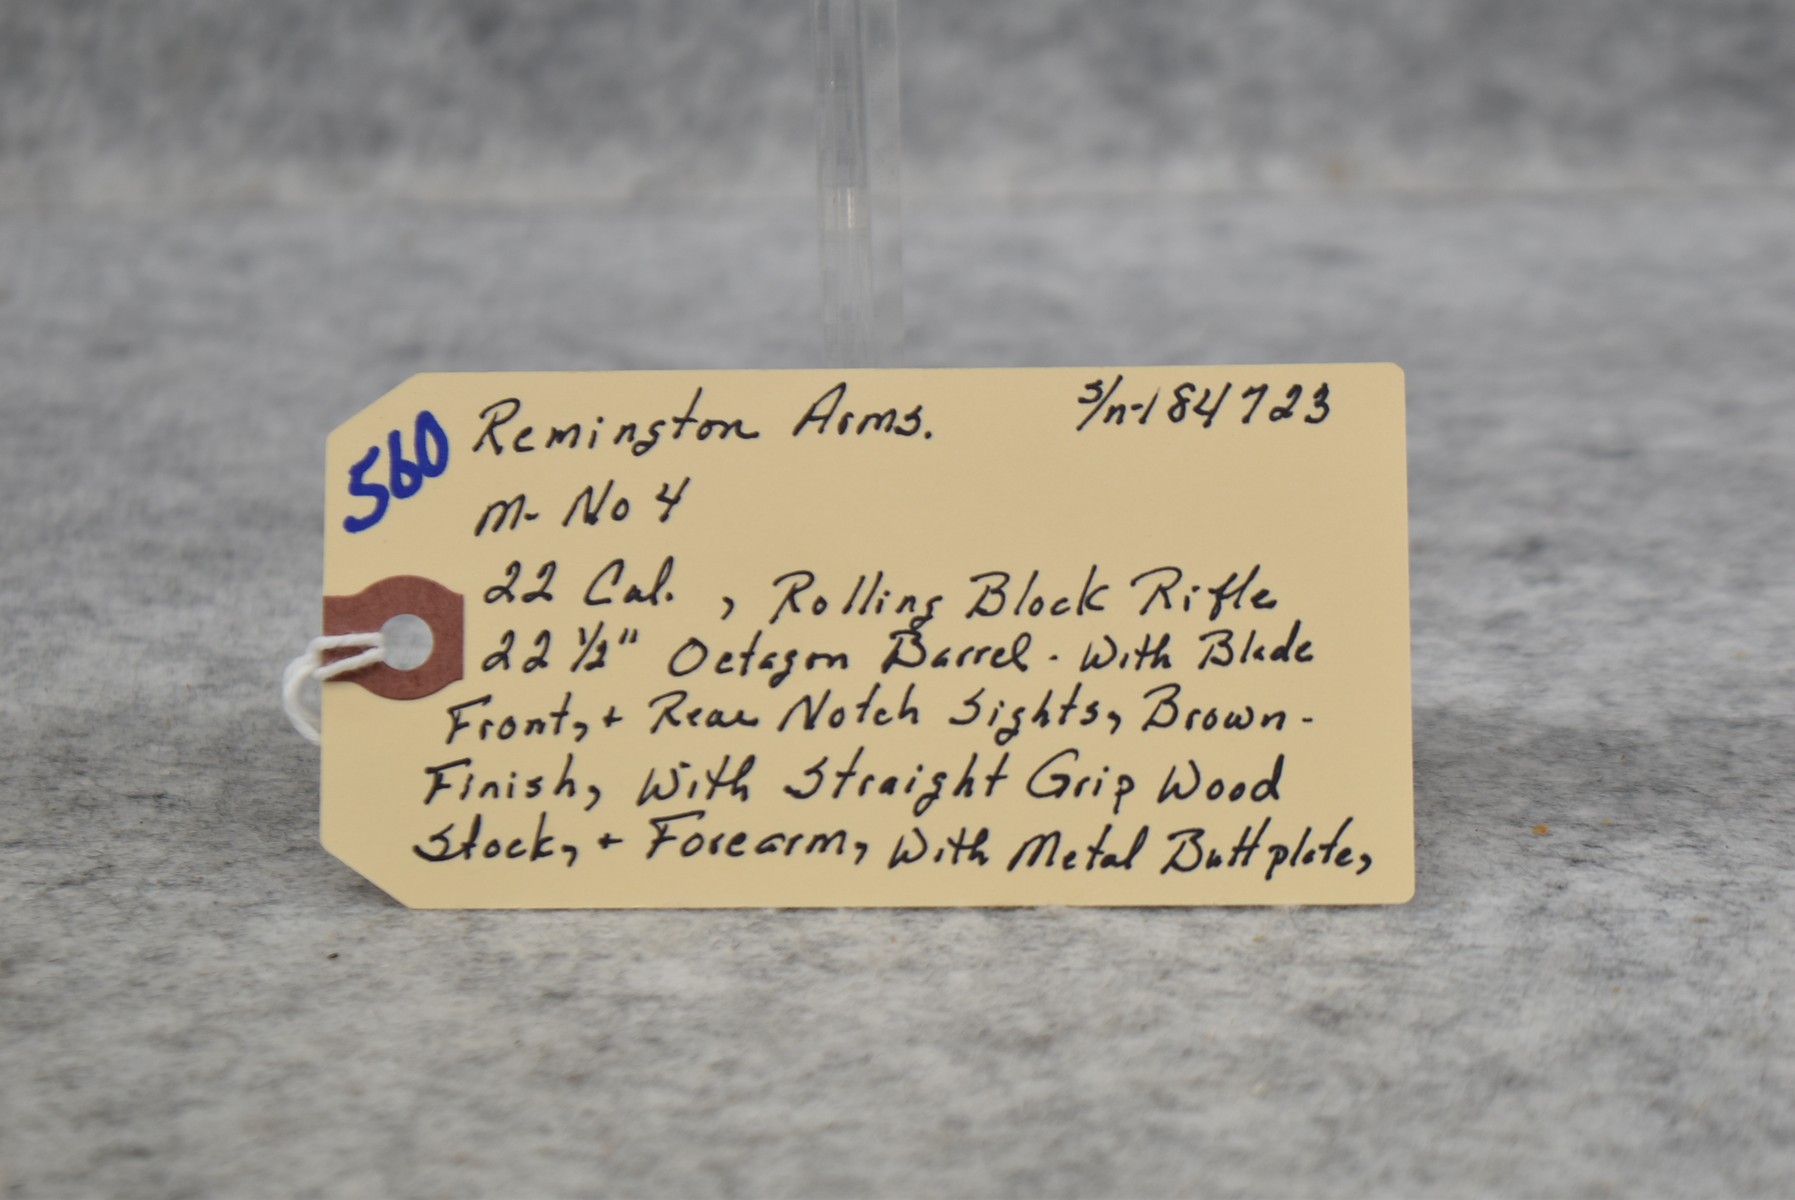 560
Remington Arms. S/n-184723
M- No 4
22 Cal. , Rolling Block Rifle
22 1/2" Octagon Barrel - With Blade
Front, + Rear Notch Sights, Brown-
Finish, With Straight Grip Wood
Stock, + Forearm, With Metal Buttplate,